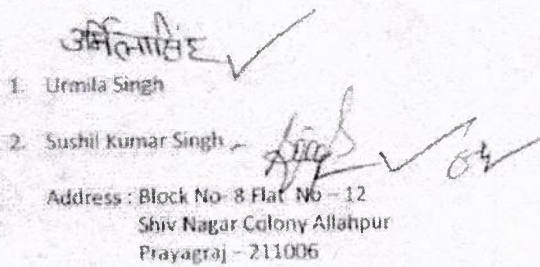 उर्मिला सिंह
1. Urmila Singh
2. Sushil Kumar Singh
Address : Block No- 8 Flat No – 12
Shiv Nagar Colony Allahpur
Prayagraj – 211006